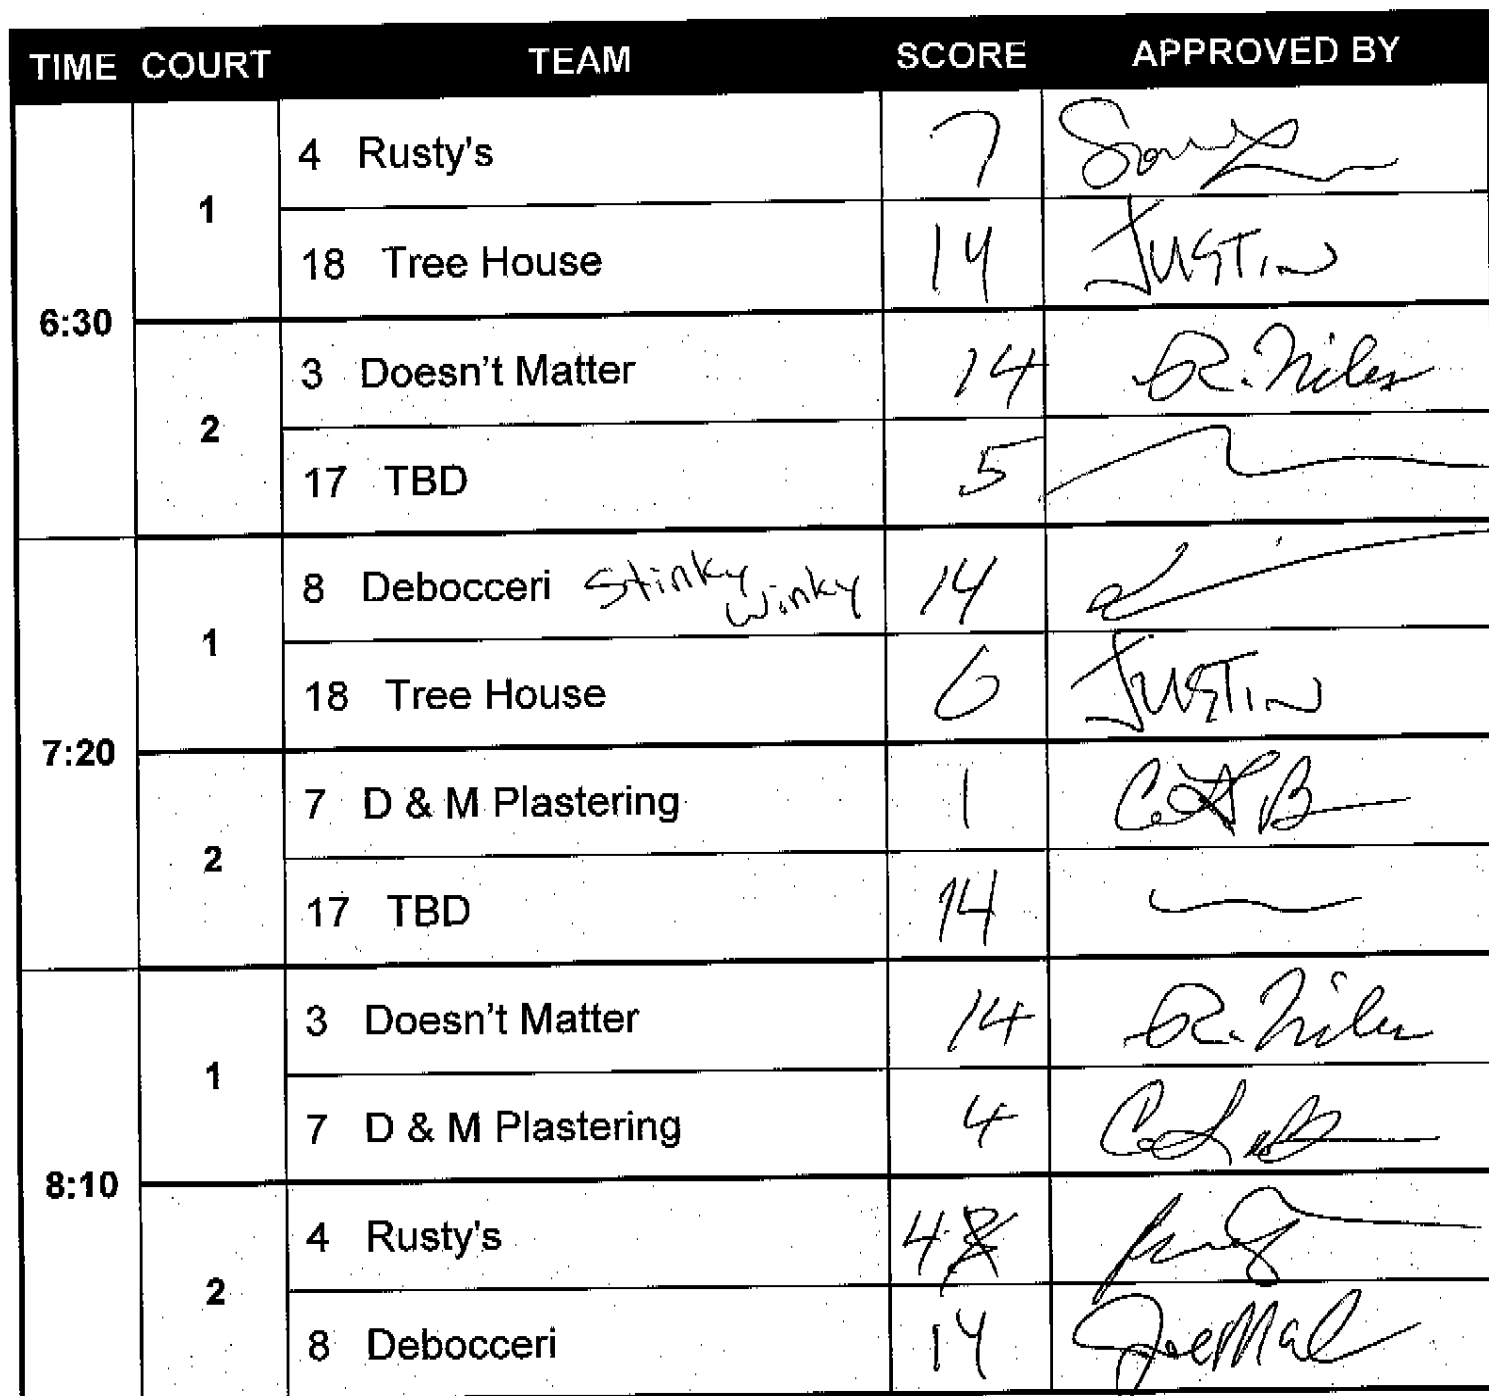 TIME COURT TEAM SCORE APPROVED BY
6:30
1
4 Rusty's 7
18 Tree House 14 JUSTIN
2
3 Doesn't Matter 14 R. Niles
17 TBD 5
7:20
1
8 Debocceri Stinky Winky 14
18 Tree House 6 JUSTIN
2
7 D & M Plastering 1
17 TBD 14
8:10
1
3 Doesn't Matter 14 R. Niles
7 D & M Plastering 4
2
4 Rusty's 4
8 Debocceri 14